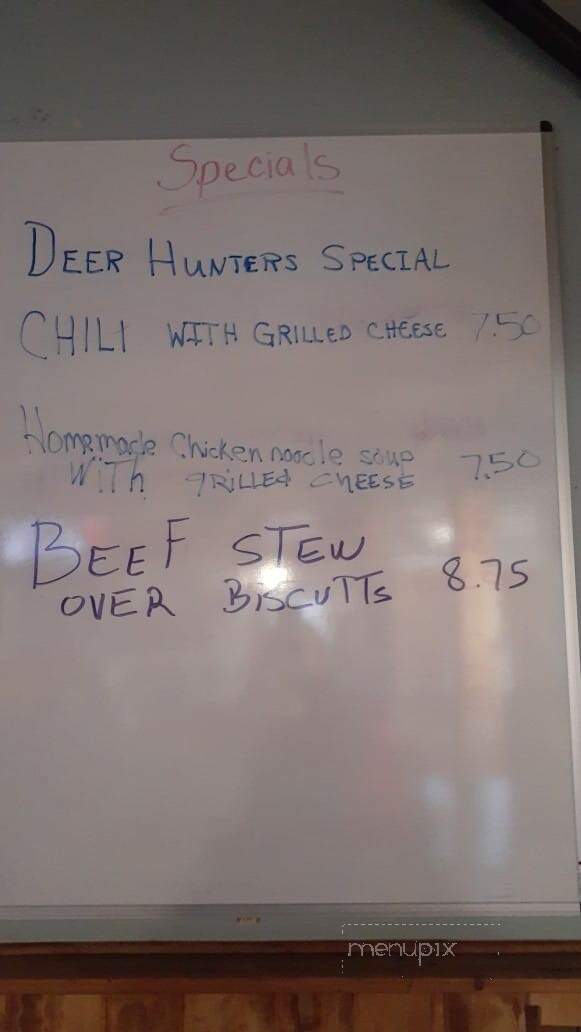 Specials
DEER HUNTERS SPECIAL
CHILI WITH GRILLED CHEESE 7.50
Homemade Chicken noodle soup
WITH GRILLED CHEESE 7.50
BEEF STEW
OVER BISCUTTS 8.75
menupix